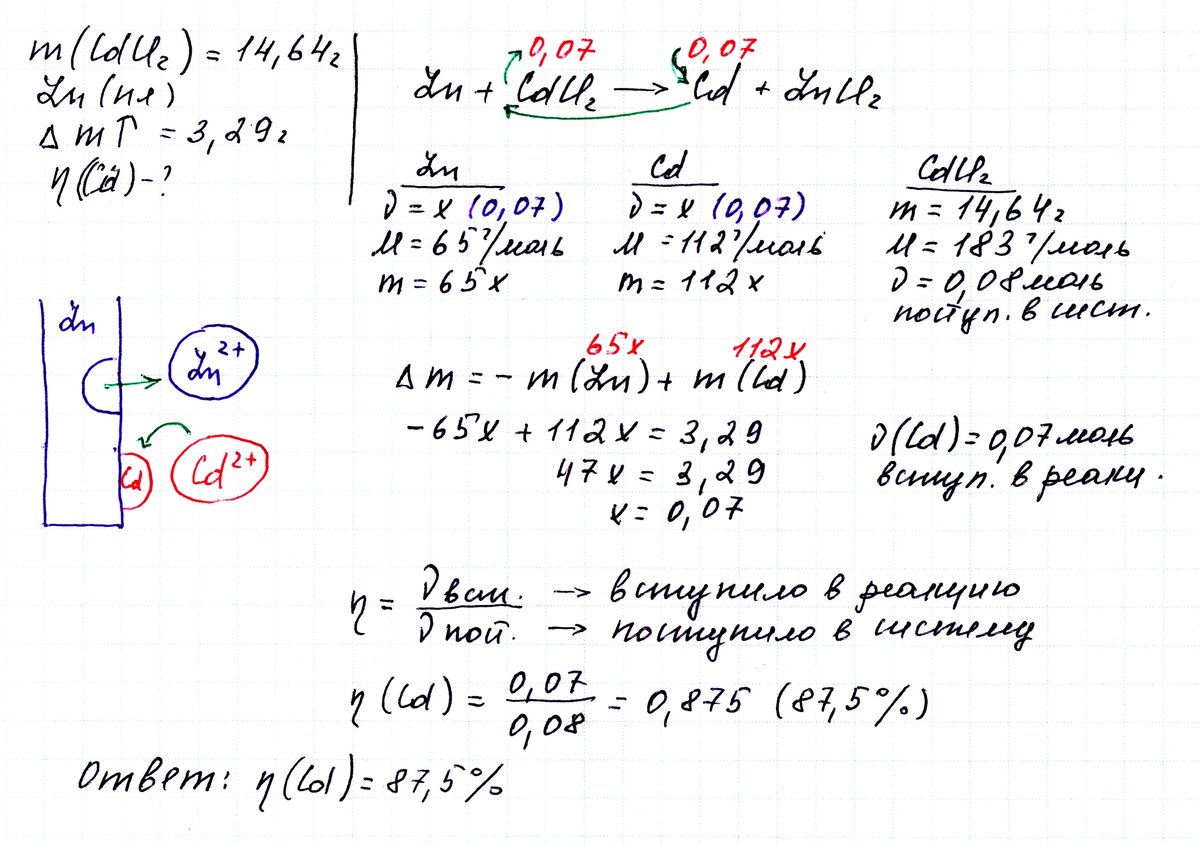 m(CdCl₂) = 14,64г
Zn(пл)
Δm↑ = 3,29г
η(Cd) - ?
0,07 0,07
Zn + CdCl₂ → Cd + ZnCl₂
Zn
ν = x (0,07)
M = 65 г/моль
m = 65x
Cd
ν = x (0,07)
M = 112 г/моль
m = 112x
CdCl₂
m = 14,64г
M = 183 г/моль
ν = 0,08 моль
поступ. в сист.
Zn
Zn²⁺
Cd
Cd²⁺
65x 112x
Δm = - m(Zn) + m(Cd)
-65x + 112x = 3,29
47x = 3,29
x = 0,07
ν(Cd) = 0,07 моль
вступ. в реакц.
η = ν вст. / ν пост.
→ вступило в реакцию
→ поступило в систему
η(Cd) = 0,07 / 0,08 = 0,875 (87,5%)
Ответ: η(Cd) = 87,5%